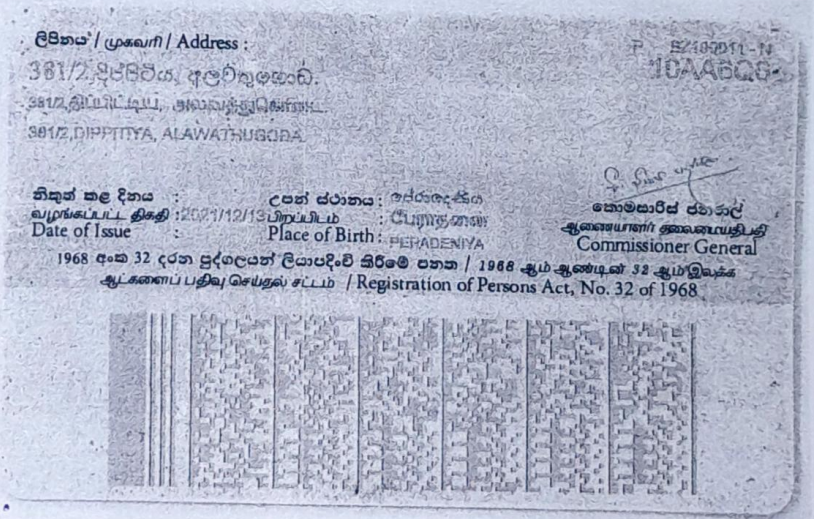 ලිපිනය / முகவரி / Address :
381/2, දිප්පිටිය, අලවතුගොඩ.
381/2, திப்பிட்டிய, அலவத்துகொட.
381/2, DIPPITIYA, ALAWATHUGODA.
නිකුත් කළ දිනය :
வழங்கப்பட்ட திகதி : 2021/12/13
Date of Issue :
උපන් ස්ථානය : පේරාදෙණිය
பிறப்பிடம் : பேராதனை
Place of Birth : PERADENIYA
කොමසාරිස් ජනරාල්
ஆணையாளர் தலைமையதிபதி
Commissioner General
1968 අංක 32 දරන පුද්ගලයන් ලියාපදිංචි කිරීමේ පනත / 1968 ஆம் ஆண்டின் 32 ஆம் இலக்க
ஆட்களைப் பதிவு செய்தல் சட்டம் / Registration of Persons Act, No. 32 of 1968